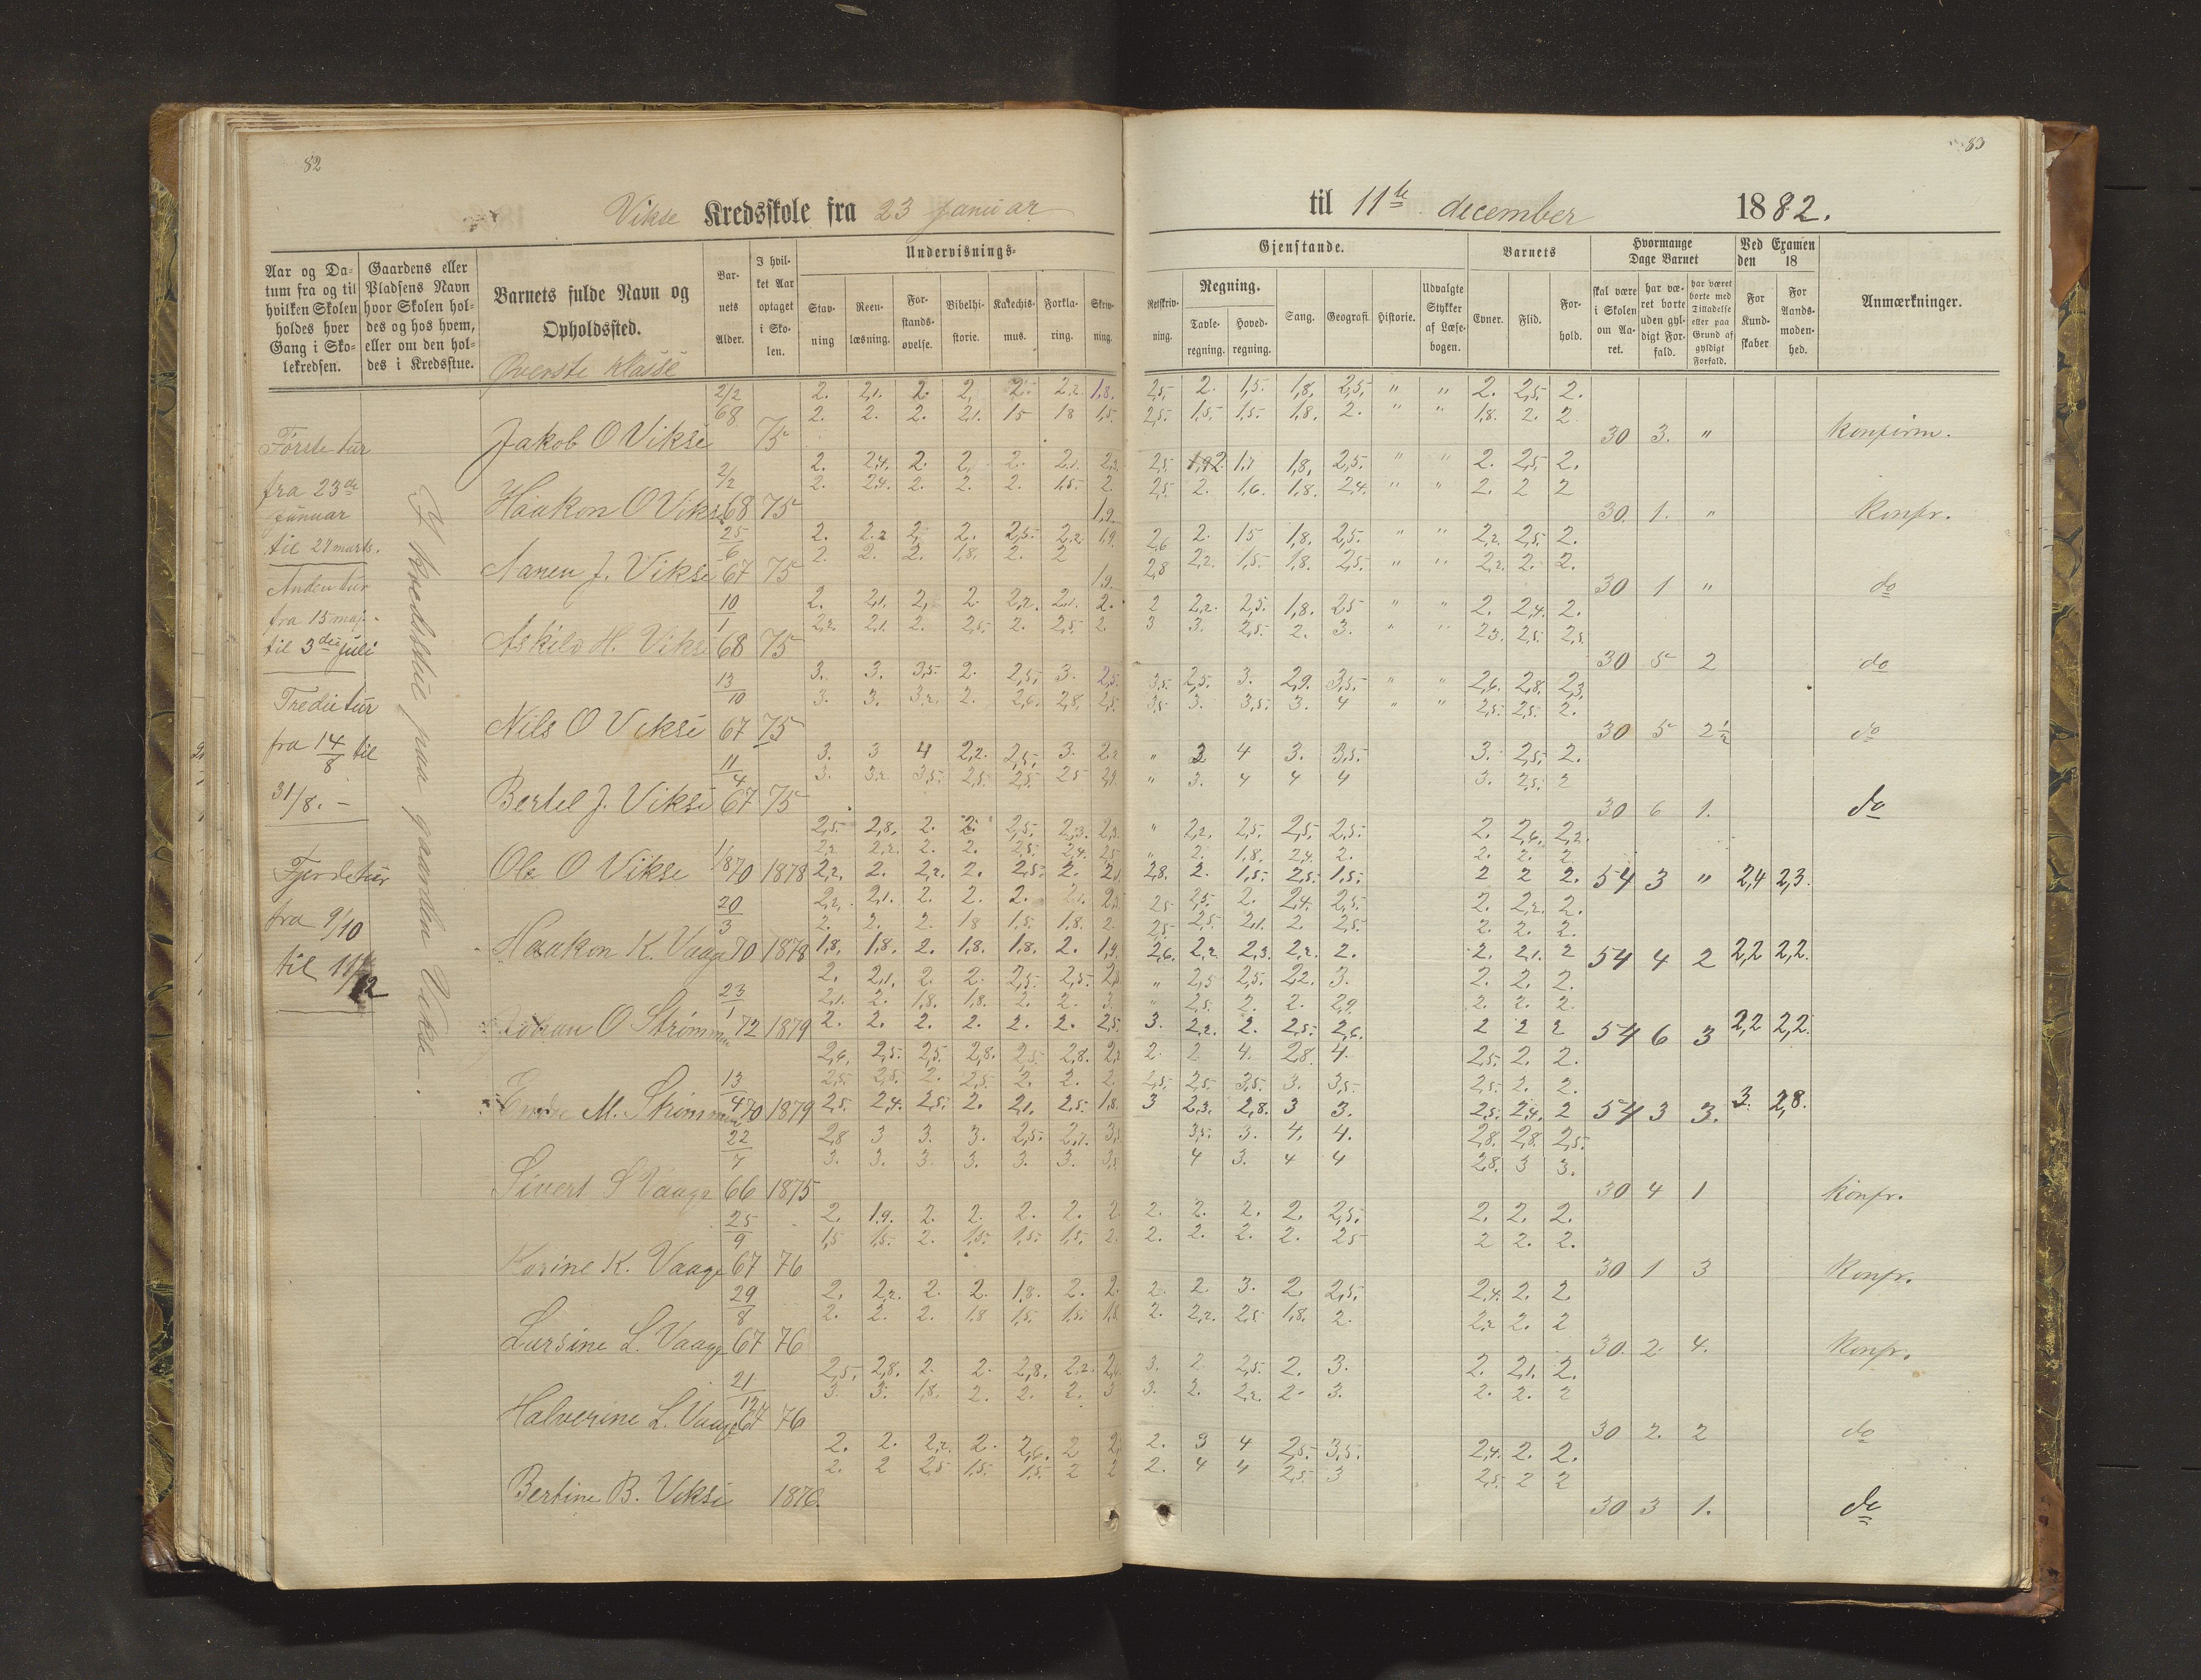 82
Vikse Kredsskole fra 23 januar
Aar og Datum fra og til hvilken Skolen holdes hver Gang i Skolekredsen.
Gaardens eller Pladsens Navn hvor Skolen holdes og hos hvem, eller om den holdes i Kredsstue.
Barnets fulde Navn og Opholdssted.
Øverste klasse
Barnets Alder.
I hvilket Aar optaget i Skolen.
Undervisnings-
Stavning
Reenlæsning.
Forstandsøvelse.
Bibelhistorie.
Katechismus.
Forklaring.
Skrivning.
Første tur
fra 23de
januar
til 27 marts.
Anden tur
fra 15 maj
til 3die juli
Tredie tur
fra 14/8 til
31/8. –
Fjerde tur
fra 9/10
til 11/12
I kredsstue paa gaarden Vikse.
2/2 2. 2,1. 2. 2, 2. 2,2. 1,8.
68 2. 2. 2. 2,1. 15 18 1,5.
Jakob O Vikse 75
2/2 2. 2,4. 2. 2. 2. 2,1. 2,3.
2. 2,4. 2. 2. 2. 1,5. 2.
Haakon O Vikse 68 75
1,9.
25/6 2. 2,2 2, 2. 2,5. 2,2. 1,9.
2. 2. 2. 1,8. 2. 2
Aanen J. Vikse 67 75
1,9.
10/1 2. 2,1. 2, 2. 2,2. 2,1. 2.
2,2. 2,1. 2. 2,5. 2. 2,5. 2.
Askild H. Vikse 68 75
13/10 3. 3. 3,5. 2. 2,5. 3. 2,5.
3. 3. 3,2. 2. 2,6. 2,8. 2,5.
Nils O Vikse 67 75
11/4 3. 3 4 2,2. 2,5. 3. 2,2
3. 3,2. 3,5. 2,5. 2,5. 25 2,9.
Bertel J. Vikse 67 75
2,5. 2,8. 2. 2. 2,5. 2,3. 2,3.
2,2 2,2. 2. 2. 2,5. 2,4. 2,5
Ole O Vikse 1/8 70 1878 2,2. 2. 2,2. 2. 2,5. 2. 2,
20/3 2,2. 2,1. 2. 2. 2. 2,1. 2,3
2. 2. 2. 18 1,5. 1,8. 2.
Haakon K. Vaage 70 1878 1,8. 1,8. 2. 1,8. 1,8. 2. 1,9
23/1 2. 2,1. 2. 2. 2,5. 2,5. 2,
2,1. 2. 1,8. 1,8. 2. 2. 3.
Johan O Strømmen 72 1879 2. 2. 2. 2. 2. 2. 2,5.
2,6. 2,5. 2,5. 2,8. 2,5. 2,8. 2,
13/4 2,5. 2,5. 2. 2,5. 2. 2. 2.
Endre M. Strømmen 70 1879 2,5. 2,4. 2,5. 2. 2,1. 2,5. 1,8.
22/7 2,8 3 3. 3. 2,5. 2,7. 3,
3. 3. 3. 3. 3. 3. 3,5
Sivert S Vaage 66 1875
25/9 2. 1,9. 2. 2. 2. 2. 2
1,5 1,5. 2. 1,5. 1,5. 1,5. 2.
Karine K. Vaage 67 76
29/8 2. 2,2. 2. 2. 1,8. 2. 2.
2. 2. 2. 1,8 1,5. 1,5. 1,8.
Lursine L. Vaage 67 76
21/12 2,5. 2,8. 2. 2. 2,8. 2,2. 2,6
3. 3. 1,8. 2. 2. 2. 3
Halverine L. Vaage 67 76
2. 2. 2,2. 2. 2,6. 2 2,
2. 2 2,5 1,5. 1,5. 2 2
Bertine B. Vikse 1876.
83
til 11te december 1882.
Gjenstande.
Retskrivning.
Regning.
Tavleregning.
Hovedregning.
Sang.
Geografi.
Historie.
Udvalgte Stykker af Læsebogen.
Barnets
Evner.
Flid.
Forhold.
Hvormange Dage Barnet
skal være i Skolen om Aaret.
har været borte uden gyldigt Forfald.
har været borte med Tilladelse eller paa Grund af gyldigt Forfald.
Ved Examen den 18
For Kundskaber
For Aandsmodenhed.
Anmærkninger.
2,5. 2. 1,5. 1,8. 2,5. " " 2. 2,5. 2.
2,5. 1,5. 1,5. 1,8. 2. " " 1,8. 2. 2
30 3. " konfirm.
2,5. 2. 1,7 1,8. 2,5. " " 2. 2,5. 2.
2,5. 2. 1,6. 1,8. 2,4. " " 2. 2 2
30. 1. " konfr.
2,6 2. 15 1,8. 2,5. " " 2,2. 2,5. 2.
2,8 2,2. 1,5. 1,8. 2,5. " " 2,2. 2. 2.
30 1 " do
2 2,2. 2,5. 1,8. 25 " " 2. 2,4. 2.
3 3. 2,5. 2. 3. " " 23. 2,5. 2,5
30 5 2 do
3,5. 2,5. 3. 2,9. 3,5. " " 2,6. 2,8. 2,3.
3,5 3. 3,5. 3. 4 " " 2,5. 2,5. 2.
30 5 2½ do
" 3 4 3. 3,5. 3. 2,5. 2.
" 3. 4 4 4 3. 2,5. 2
30 6 1. do
" 2,2. 2,5. 2,5. 2,5. 2. 2,6. 2,2.
" 2. 1,8. 2,4. 2. 2. 2. 2
2,8. 2. 1,5. 2,5. 1,5. 2 2 2. 54 3 " 2,4 2,3.
25 2,5. 2. 2,4. 2,5. 2. 2,2. 2.
2,5. 2,5. 2,1. 2. 2,5. 2. 2. 2.
2,6. 2,2. 2,3. 2,2. 2. 2. 2,1. 2 54 4 2 2,2 2,2.
" 2,5 2,5. 2,2. 3. 2. 2. 2.
" 2,5. 2. 2. 2,9. 2. 2. 2.
3. 2,2. 2. 2,5. 2,6. 2 2 2 54 6 3 2,2 2,2.
2. 2 4. 28. 4. 2,5. 2. 2.
2,5. 2,5. 3,5. 3. 3,5. 2,5. 2. 2.
3 2,3. 2,8. 3 3. 2,5. 2,4. 2 54 3 3. 3. 2,8.
3,5. 3. 4. 4. 2,8. 2,8. 2,5.
4 3. 4 4 28. 3 3.
30 4 1 konfr.
2. 2. 2. 2. 2,5. 2. 2. 2.
2. 2. 2. 2. 25 2 2. 2.
30 1 3 konfr.
2. 2 3. 2. 2,5. 2,4. 2. 2.
2. 2,2. 2,5 1,8. 2. 2,2 2. 2
30. 2. 4. konfr.
3. 2. 2,5. 2. 3. 2. 2,1. 2.
3. 2. 2,2. 2 3. 2. 2. 2
30 2. 2 do
2. 3 4 2,5. 3,5. 2,4. 2. 2.
2. 4 4 2,5. 3 2,5. 2 2
30 3 1. do